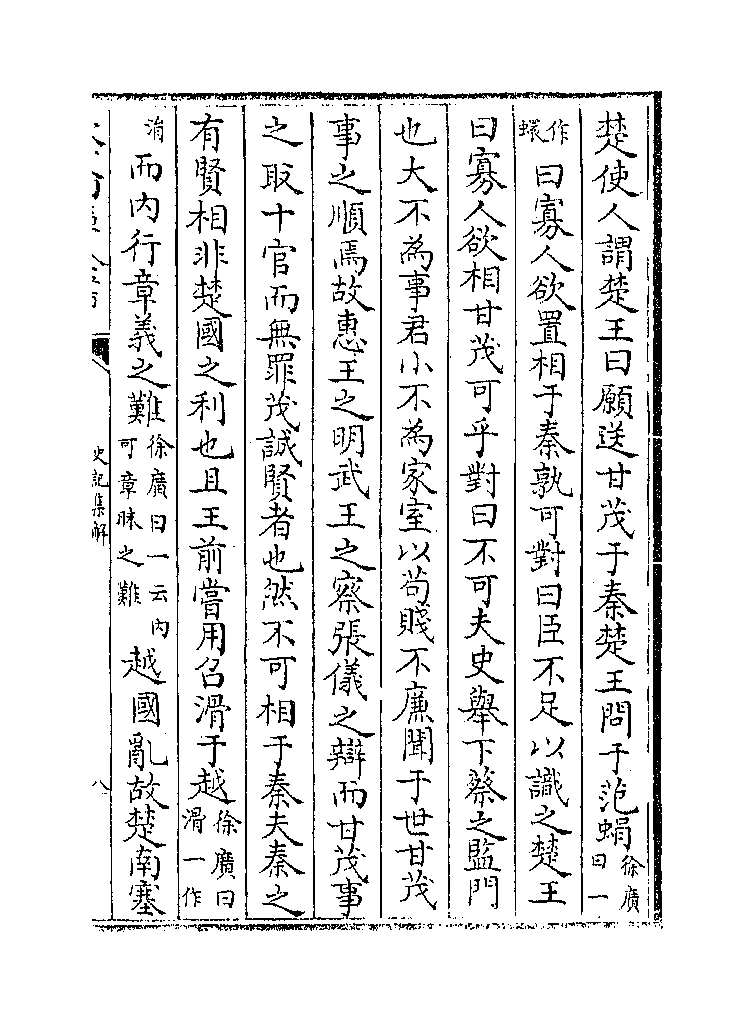 楚使人謂楚王曰願送甘茂于秦楚王問于范蜎徐廣曰一
作蠉曰寡人欲置相于秦孰可對曰臣不足以識之楚王
曰寡人欲相甘茂可乎對曰不可夫史舉下蔡之監門
也大不為事君小不為家室以苟賤不廉聞于世甘茂
事之順焉故惠王之明武王之察張儀之辯而甘茂事
之取十官而無罪茂誠賢者也然不可相于秦夫秦之
有賢相非楚國之利也且王前嘗用召滑于越徐廣曰滑一作
涓而内行章義之難徐廣曰一云内可章昧之難越國亂故楚南塞
史記集解
八